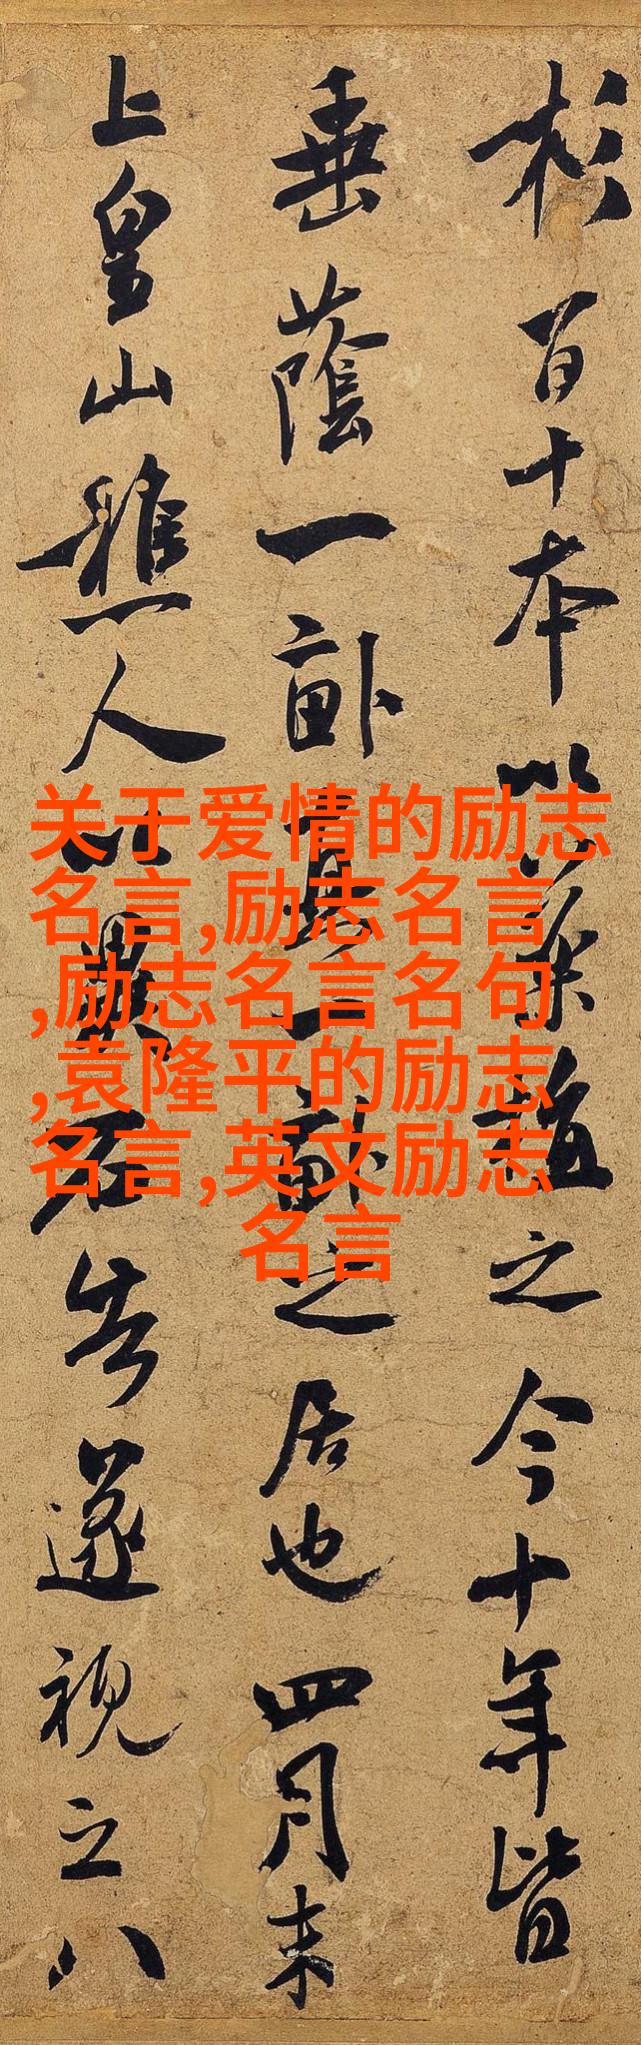 杉百十本以藥植之今十年皆
垂蔭一畝真一畝之居也四月末
上皇山樵人以異石告遂視之八
关于爱情的励志
名言,励志名言
,励志名言名句
,袁隆平的励志
名言,英文励志
名言